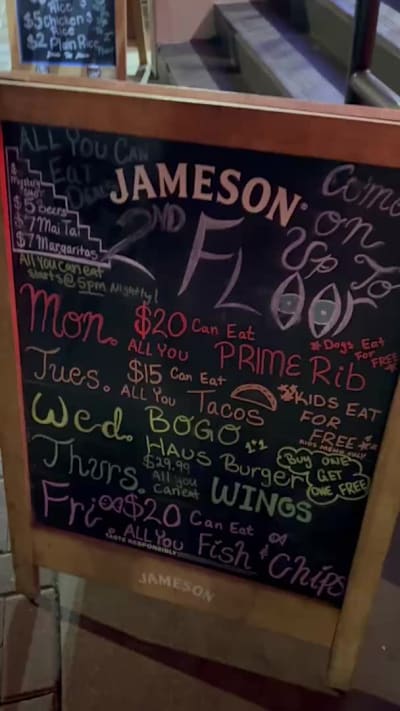 Rice
$5 Chicken $
Rice
$2 Plain Rice
ALL YOU CAN
Eat
Deals
JAMESON
Come
on
Up To
2ND
FLOOR
$5 Beers
$7 Mai Tai
$7 Margaritas
All you can eat
starts @ 5pm Nightly!
Mon. $20 Can Eat
ALL YOU PRIME Rib
*Dogs Eat
FOR
FREE
Tues. $15 Can Eat
ALL You Tacos
*KIDS EAT
FOR
FREE*
KIDS MENU ONLY
Wed. BOGO
HAUS Burger
Buy ONE
GET
ONE FREE
Thurs. $29.99
All you
Can eat WINGS
Fri. $20 Can Eat
ALL You Fish & Chips
TASTE RESPONSIBLY
JAMESON